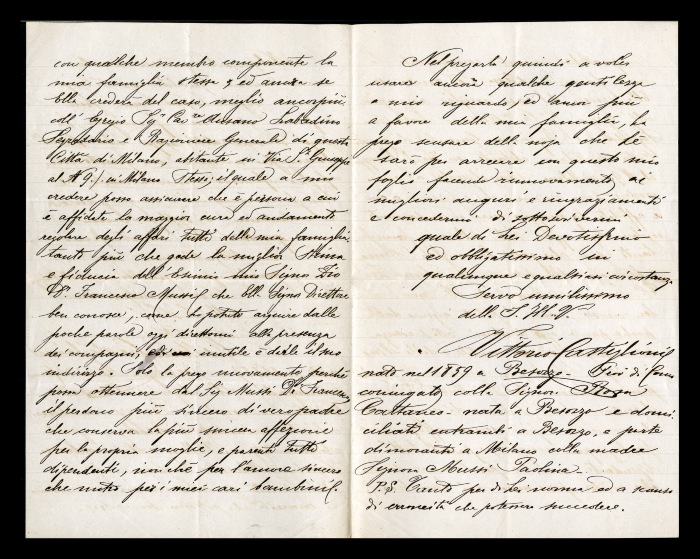 con qualche membro componente la
mia famiglia stessa, ed ancora se
Ella crederà del caso, meglio ancor più
coll' Egregio Sig.r Cav.re Sabadino
Segretario e Ragioniere Generale di questa
Città di Milano, abitante in Via S. Giuseppe
al N. 9. in Milano stessi, il quale a mio
credere posso assicurare che è persona a cui
è affidata la maggior cura ed andamento
regolare degli affari tutti della mia famiglia
tanto più che gode la miglior stima
e fiducia dell' Esimio mio Signor Zio
D. Francesco Mussi che Ella Signor Direttore
ben conosce, come ho potuto arguire dalle
poche parole oggi direttomi alla presenza
dei compagni, ed inutile è darle il suo
indirizzo. Solo la prego nuovamente perchè
possa ottenere dal Sig Mussi D. Francesco
il perdono più sincero di vero padre
che conserva la più sincera affezione
per la propria moglie, e parenti tutti
dipendenti, nonchè per l'amore sincero
che nutro per i miei cari bambini.
Nel pregarla quindi a voler
usare ancora qualche gentilezza
a mio riguardo, ed ancor più
a favore della mia famiglia, la
prego scusare della noja che Le
sarò per arrecare con questo mio
foglio facendo nuovamente i
migliori auguri e ringraziamenti
e concedermi di sottoscrivermi
quale di Lei Devotissimo
ed obbligatissimo in
qualunque e qualsiasi circostanza
Servo umilissimo
della S. M. V.
Vittorio Castiglioni
nato nel 1859 a Besozzo
coniugato colla Signora Rosa
Cattaneo nata a Besozzo e domi
ciliati entrambi a Besozzo, e parte
dimoranti a Milano colla madre
Signora Mussi Paolina.
P.S. Tanto per di Lei norma ed a scanso
di erroneità che potessero succedere.